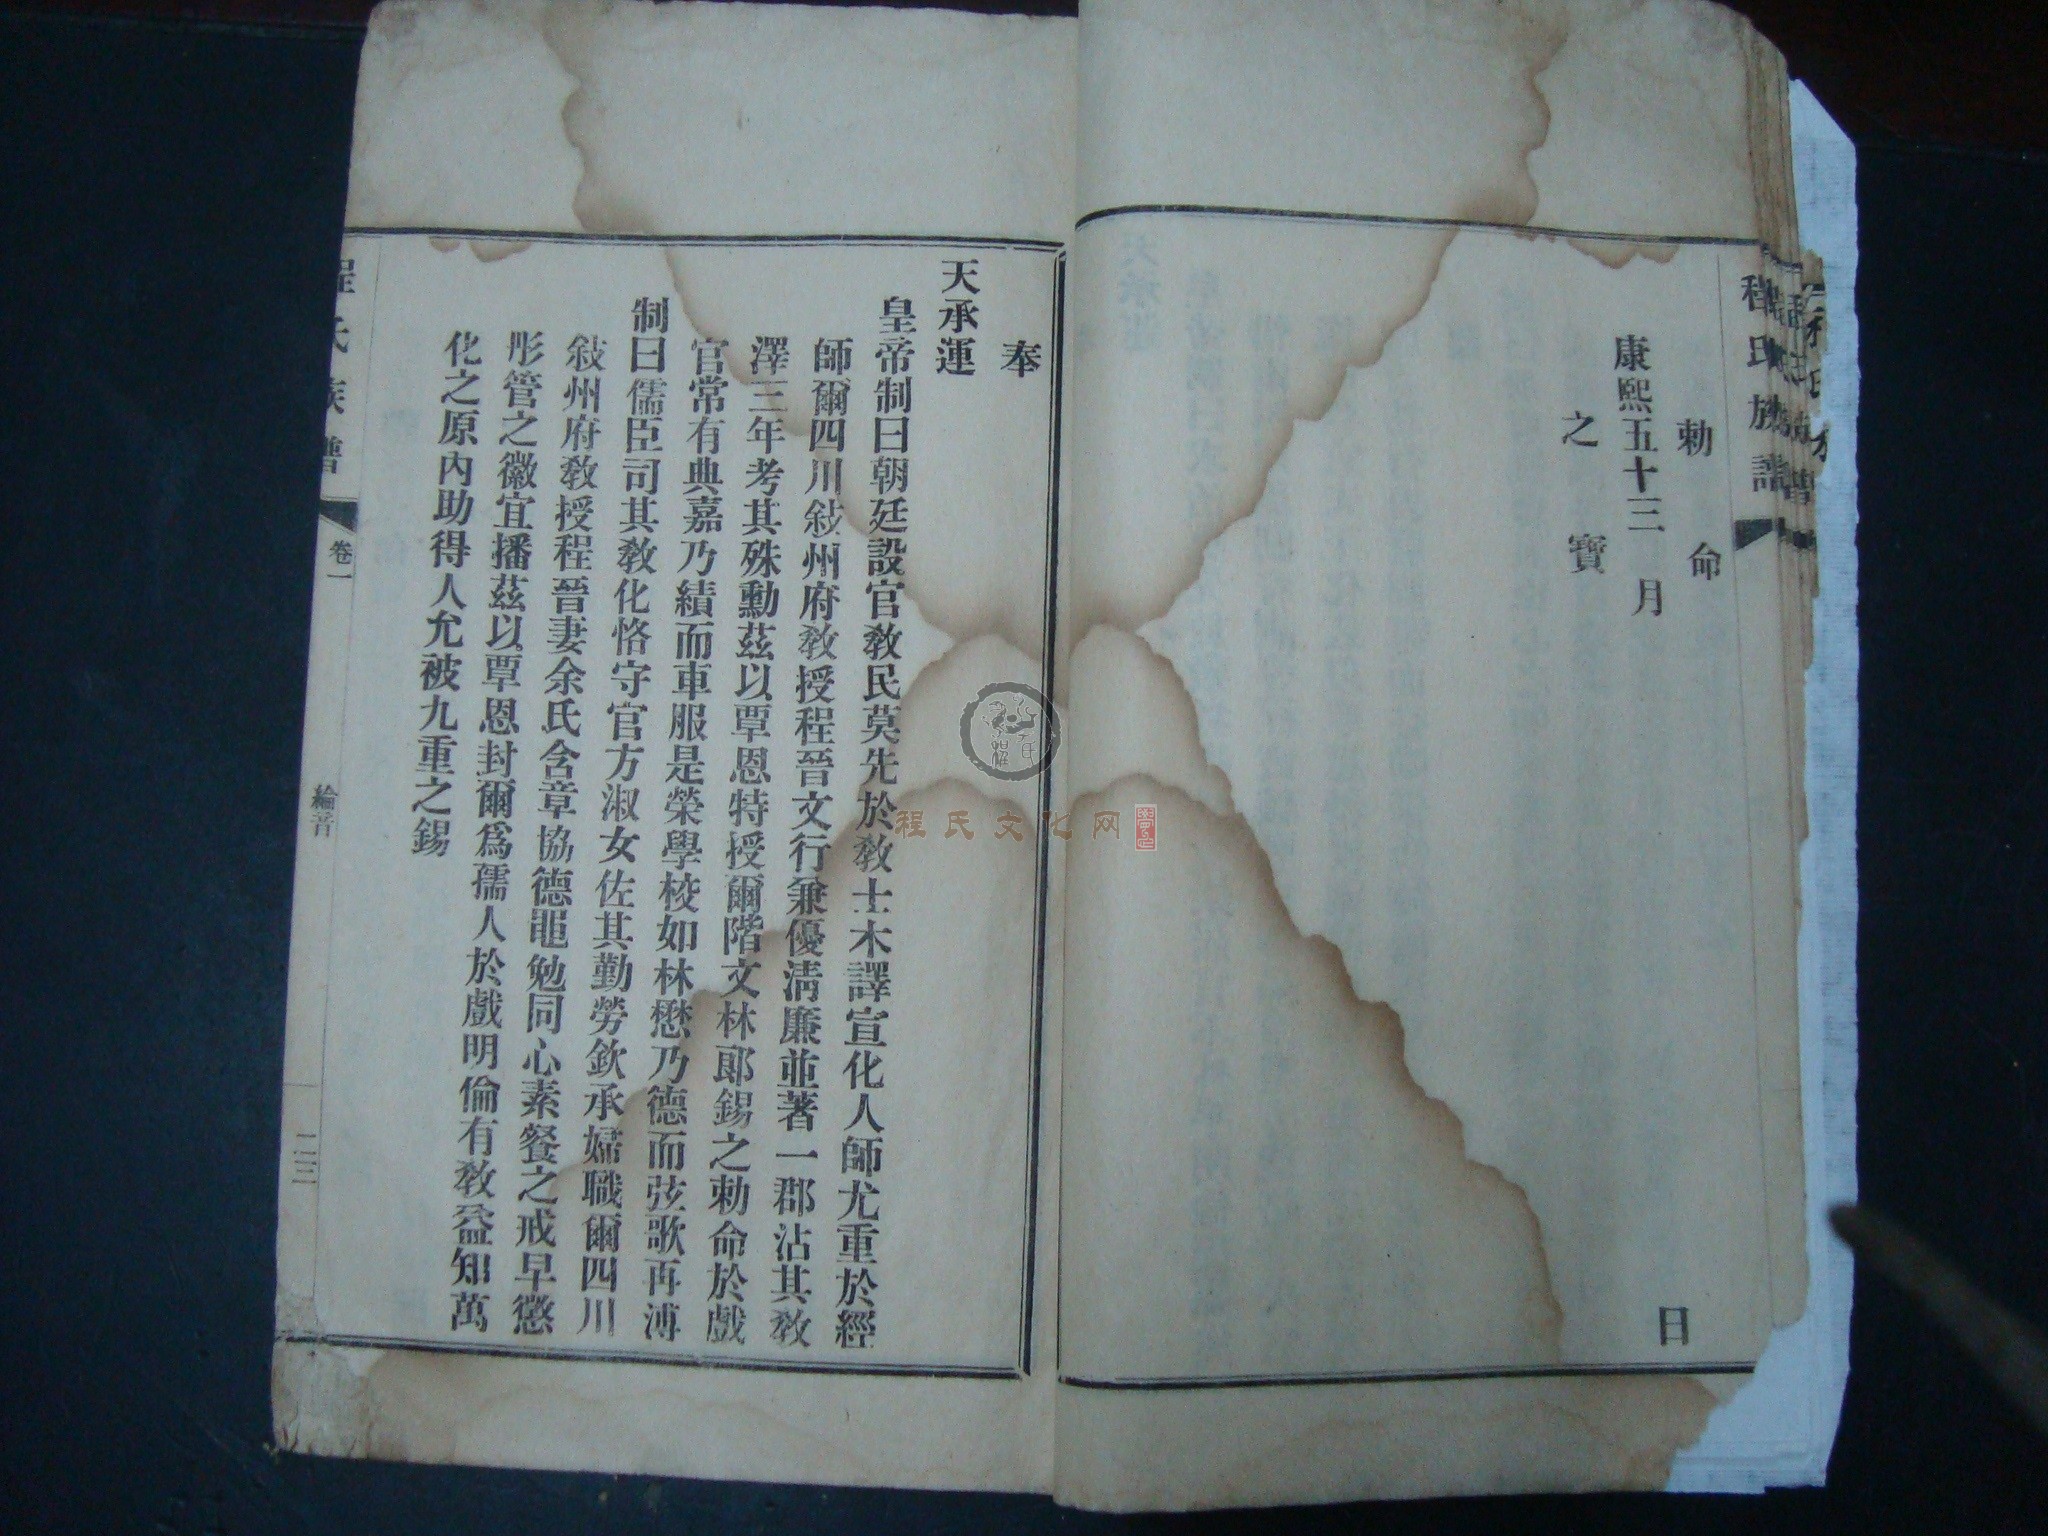 程氏族譜
勅命
康熙五十三 月 日
之寶
奉
天承運
皇帝制曰朝廷設官敎民莫先於敎士木譯宣化人師尤重於經
師爾四川敍州府敎授程晉文行兼優淸廉並著一郡沾其敎
澤三年考其殊勳茲以覃恩特授爾階文林郞錫之勅命於戲
官常有典嘉乃績而車服是榮學校如林懋乃德而弦歌再溥
制曰儒臣司其敎化恪守官方淑女佐其勤勞欽承婦職爾四川
敍州府敎授程晉妻余氏含章協德黽勉同心素餐之戒早懲
彤管之徽宜播茲以覃恩封爾爲孺人於戲明倫有敎益知萬
化之原內助得人允被九重之錫
程氏族譜
卷一
綸音
二三
程氏文化网